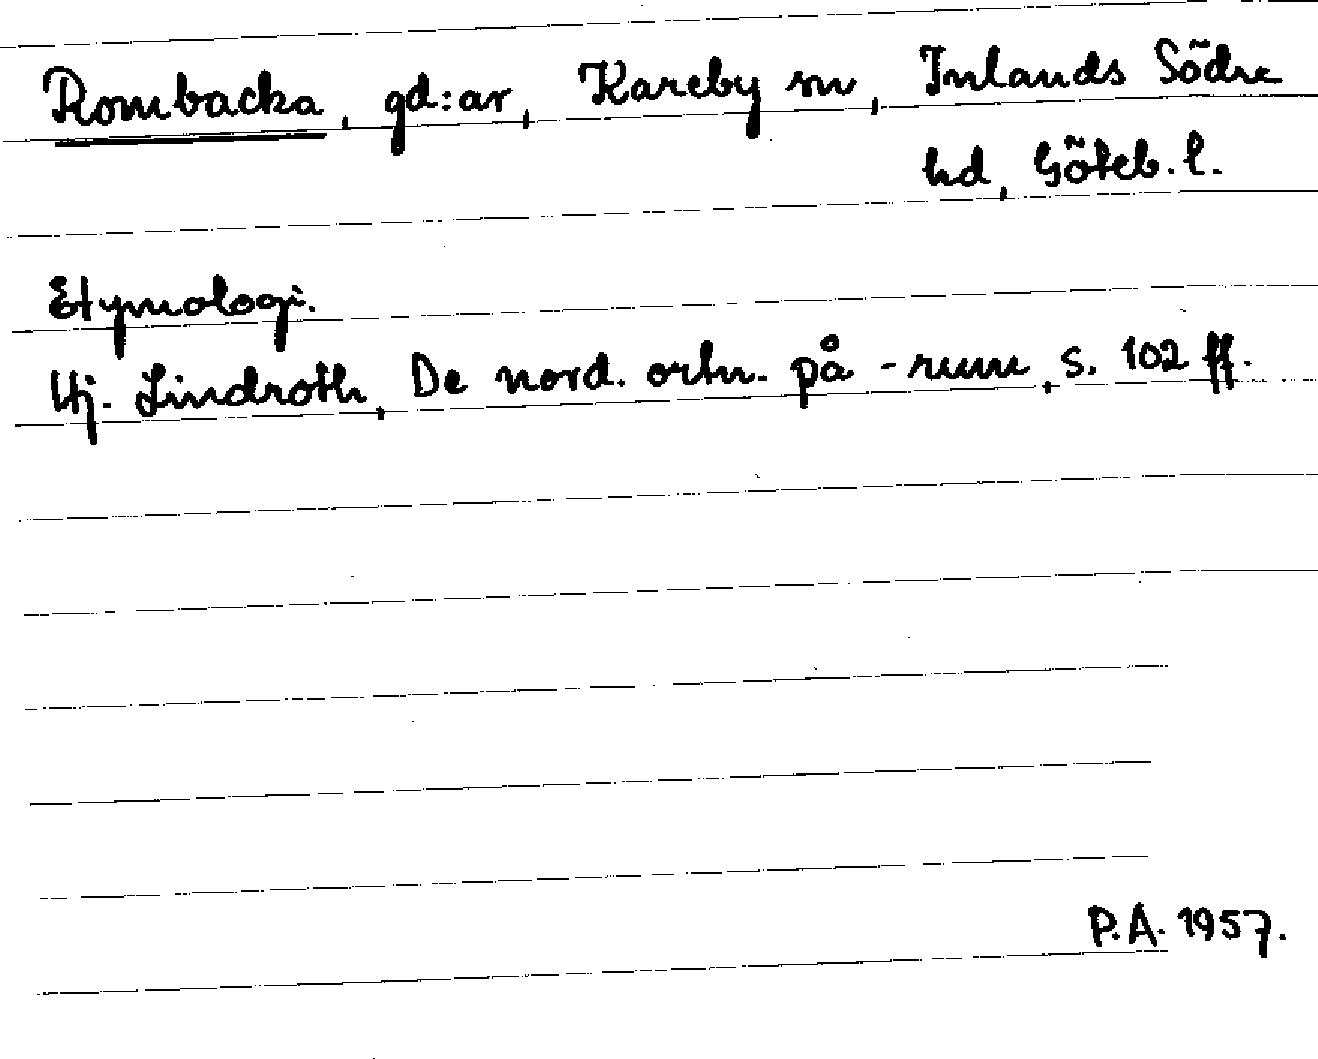 Rombacka, gd:ar, Kareby sn, Inlands Södre
hd, Göteb. l.
Etymologi.
Hj. Lindroth, De nord. ortn. på -rum, s. 102 ff.
P.A. 1957.